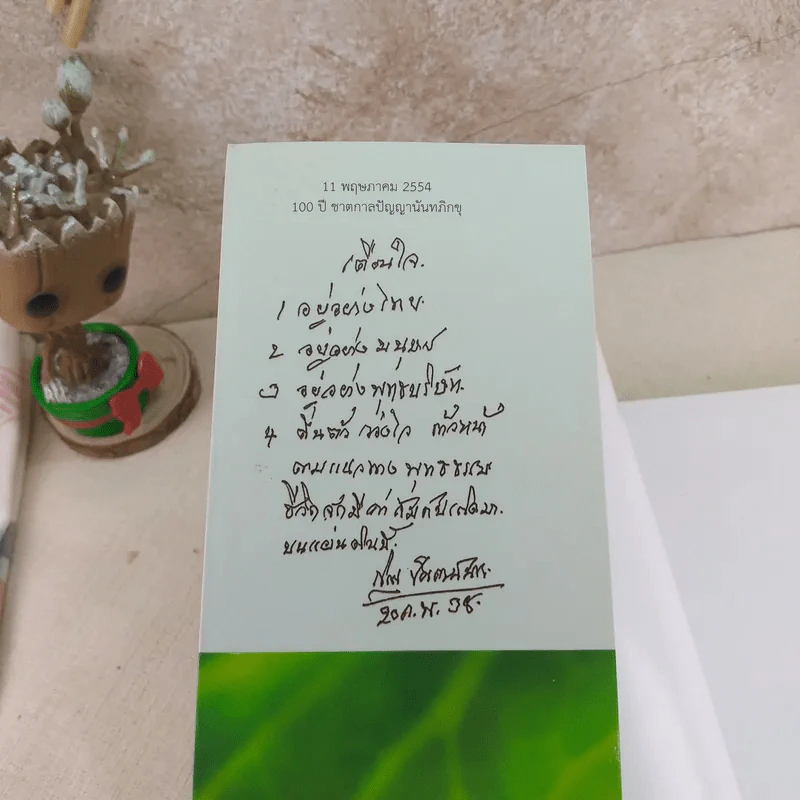 11 พฤษภาคม 2554
100 ปี ชาตกาลปัญญานันทภิกขุ
เตือนใจ.
1 อยู่อย่างไทย
2 อยู่อย่างมนุษย์
3 อยู่อย่างพุทธบริษัท.
4 ตื่นตัว ว่องไว ก้าวหน้า
ตามแนวทาง พุทธธรรม
ชีวิตจักมีค่า สมกับเกิดมา.
บนแผ่นดินนี้.
๒๐ ก.พ. ๓๕.